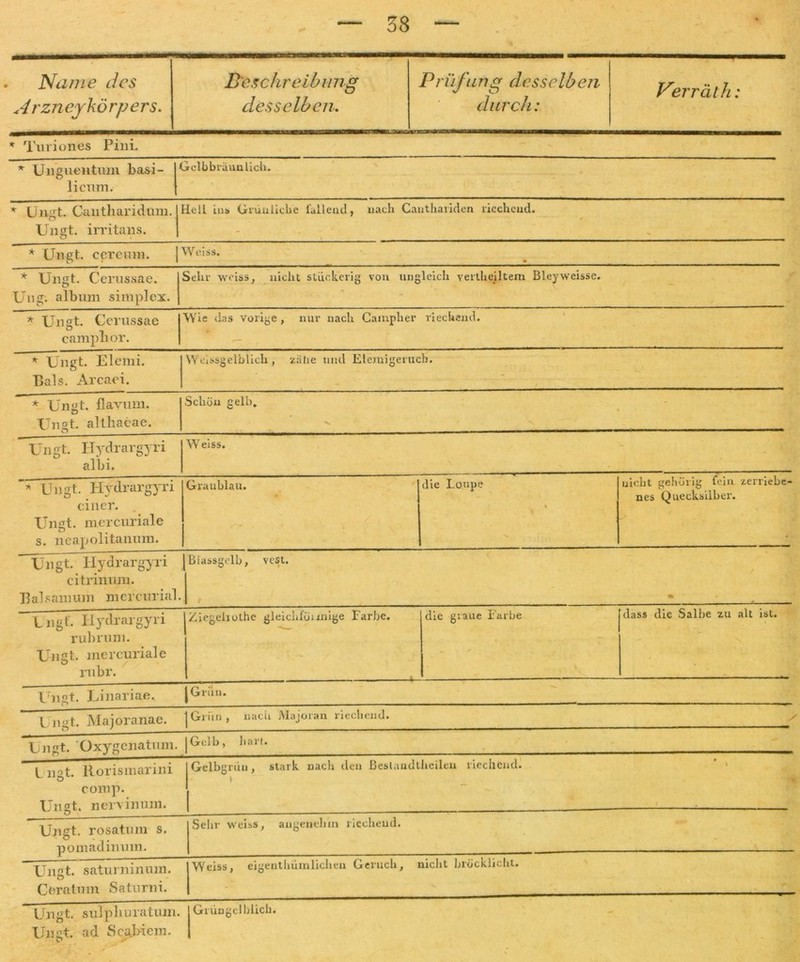 — 38 —
Name des Arzneykörpers.
Beschreibung desselben.
Prüfung desselben durch:
Verräth:
* Turiones Pini.
* Unguentum basi-
licum.
Gelbbräunlich.
* Ungt. Cantharidum.
Ungt. irritans.
Hell ins Grünliche fallend, nach Canthariden riechend.
* Ungt. cereum.
Weiss.
* Ungt. Cerussae.
Ung. album simplex.
Sehr weiss, nicht stückerig von ungleich vertheiltem Bleyweisse.
* Ungt. Cerussae
camphor.
Wie das vorige, nur nach Campher riechend.
* Ungt. Elemi.
Bals. Arcaei.
Weissgelblich, zähe und Elemigeruch.
* Ungt. flavum.
Ungt. althaeae.
Schön gelb.
Ungt. Hydrargyri
albi.
Weiss.
* Ungt. Hydrargyri
ciner.
Ungt. mercuriale
s. neapolitanum.
Graublau.
die Loupe
nicht gehörig fein zerriebe-
nes Quecksilber.
Ungt. Hydrargyri
citrinum.
Balsamum mercurial.
Blassgelb, vest.
Ungt. Hydrargyri
rubrum.
Ungt. mercuriale
rubr.
Ziegelrothe gleichförmige Farbe.
die graue Farbe
dass die Salbe zu alt ist.
Ungt. Linariae.
Grün.
Ungt. Majoranae.
Grün, nach Majoran riechend.
Ungt. Oxygenatum.
Gelb, hart.
Ungt. Rorismarini
comp.
Ungt. nervinum.
Gelbgrün, stark nach den Bestandtheilen riechend.
Ungt. rosatum s.
pomadinum.
Sehr weiss, angenehm riechend.
Ungt. saturninum.
Ceratum Saturni.
Weiss, eigenthümlichen Geruch, nicht bröcklicht.
Ungt. sulphuratum.
Ungt. ad Scabiem.
Grüngelblich.